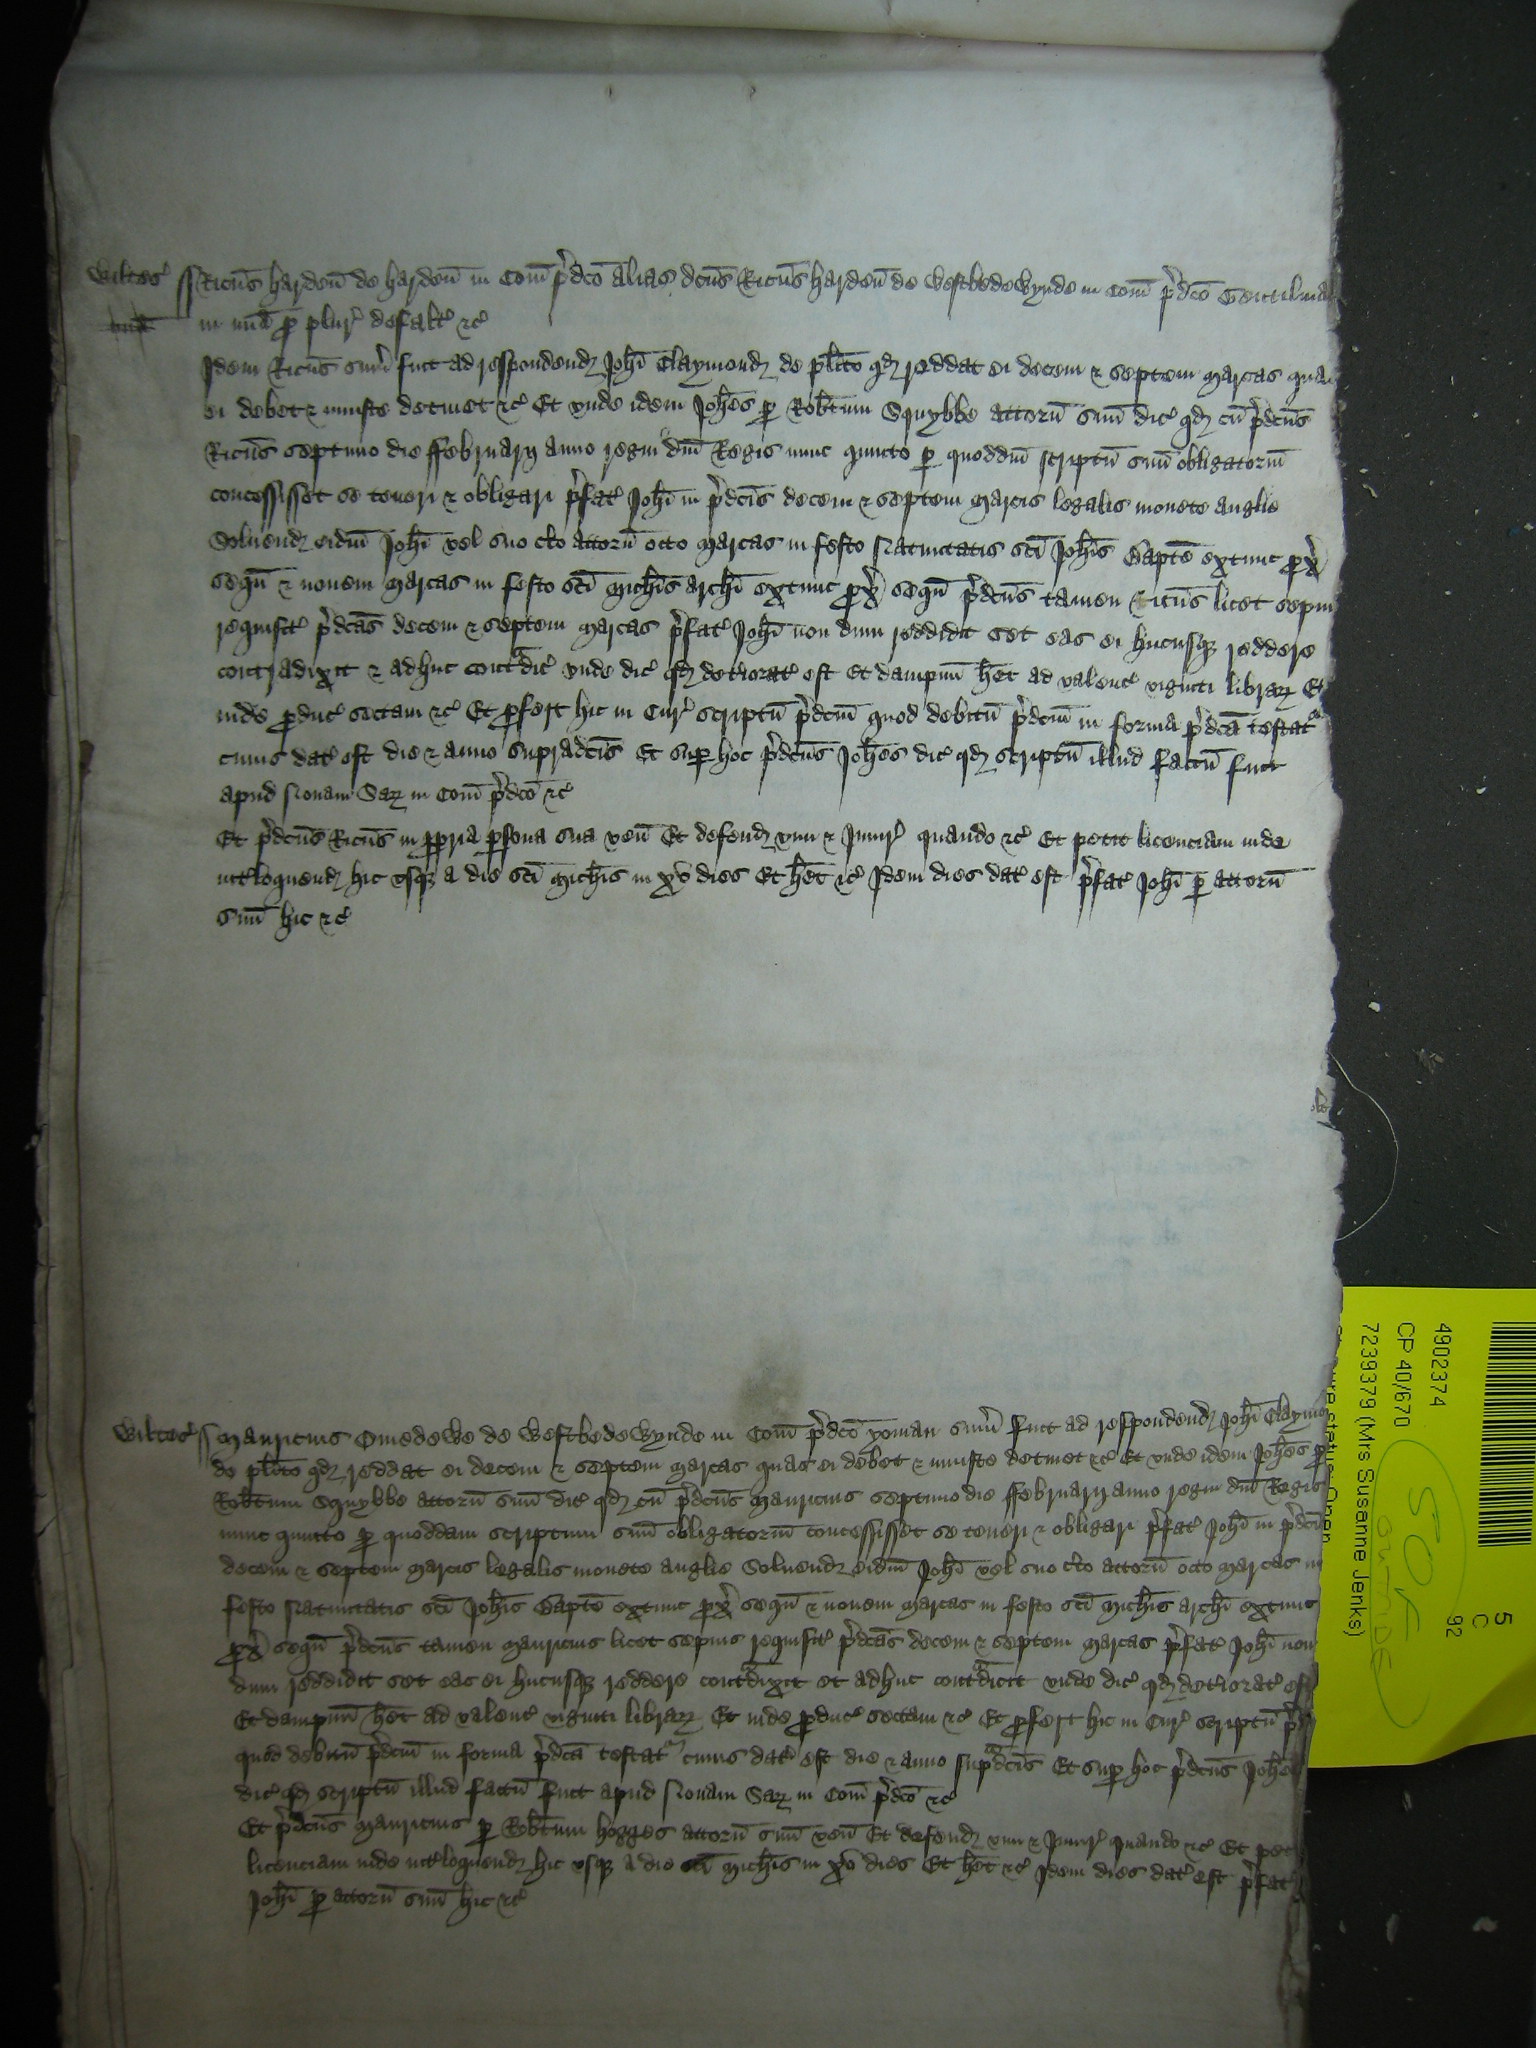 Wiltes' ss Ricus hardeñ de hardeñ in Com̄ p̄dco alias dcūs Ricūs hardeñ de Westbedewynde in Com̄ p̄dco Gentilman
in mīa p̱ plur' defalt' ⁊c'
Idem Ricūs sum̄ fuit ad respondend' Johī Claymond' de pl̄ito qd' reddat ei decem ⁊ septem marcas quas
ei debet ⁊ iniuste detinet ⁊c' Et vnde idem Johēs p̱ Rob̄tum Squybbe attorñ suū dic' qd' cū p̄dcūs
Ricūs septimo die ffebruarij anno regni dn̄i Regis nunc quinto p̱ quoddm̄ scriptū suū obligatoriū
concessisset se teneri ⁊ obligari p̄fat' Johī in p̄dcīs decem ⁊ septem marcis legalis monete anglie
Soluend' eidm̄ Johī vel suo cto attorñ octo marcas in festo Natiuitatis scī Johīs Bapte extunc p̱x'
sequn̄ ⁊ nouem marcas in festo scī Micħis archī extunc p̱x' sequn̄ p̄dcūs tamen Ricūs licet sepius
requisit' p̄dcās decem ⁊ septem marcas p̄fat' Johī non dum reddidit set eas ei hucusq' reddere
contradixit ⁊ adhuc cont̄dic' vnde dic' qd' deteriorat' est Et dampnū h̄et ad valenc' viginti librar' Et
inde p̱duc' sectam ⁊c' Et p̱fert hic in Cur' scriptū p̄dcm̄ quod debitū p̄dcm̄ in forma p̄dcā testat'
cuius dat' est die ⁊ anno supradcīs Et sup̱ hoc p̄dcūs Johēs dic' qd' scriptū illud factū fuit
apud Nouam Sar' in Com̄ p̄dco ⁊c'
Et p̄dcūs Ricūs in p̱p̱ria p̱sona sua veñ Et defend' vim ⁊ Iniur' quando ⁊c' Et petit licenciam inde
int̄loquend' hic vsq' a die scī Micħis in xv dies Et h̄et ⁊c' Idem dies dat' est p̄fat' Johī p̱ attorñ
suū hic ⁊c'
Wiltes' ss Mauricius Omedewe de Westbedewynde in Com̄ p̄dco yoman sum̄ fuit ad respondend' Johī Claymo
de pl̄ito qd' reddat ei decem ⁊ septem marcas quas ei debet ⁊ iniuste detinet ⁊c' Et vnde idem Johēs p̱
Rob̄tum Squybbe attorñ suū dic' qd' cū p̄dcūs Mauricius septimo die ffebruarij anno regni dn̄i Regis
nunc quinto p̱ quoddam scriptum suū obligatoriū concessisset se teneri ⁊ obligari p̄fat' Johī in p̄dcīs
decem ⁊ septem marcis legalis monete anglie Soluend' eidm̄ Johī vel suo cto attorñ octo marcas in
festo Natiuitatis scī Johīs Bapte extunc p̱x' sequn̄ ⁊ nouem marcas in festo scī Micħis archī extunc
p̱x' sequn̄ p̄dcūs tamen Mauricius licet sepius requisit' p̄dcās decem ⁊ septem marcas p̄fat' Johī non
dum reddidit set eas ei hucusq' reddere cont̄dixit et adhuc cont̄dicit vnde dic' qd' deteriorat' est
Et dampnū h̄et ad valenc' viginti librar' Et inde p̱duc' sectam ⁊c' Et p̱fert hic in Cur' scriptū
quod debitū p̄dcm̄ in forma p̄dcā testat' cuius dat' est die ⁊ anno sup̄dcīs Et sup̱ hoc p̄dcūs Johēs
dic' qd' scriptū illud factū fuit apud Nouam Sar' in Com̄ p̄dco ⁊c'
Et p̄dcūs Mauricius p̱ Rob̄tum hogges attorñ suū veñ Et defend' vim ⁊ Iniur' quando ⁊c' Et pet
licenciam inde int̄loquend' hic vsq' a die scī Micħis in xv dies Et h̄et ⁊c' Idem dies dat' est p̄fat'
Johī p̱ attorñ suū hic ⁊c'
4902374
CP 40/670
7239379 (Mrs Susanne Jenks)
5
C
92